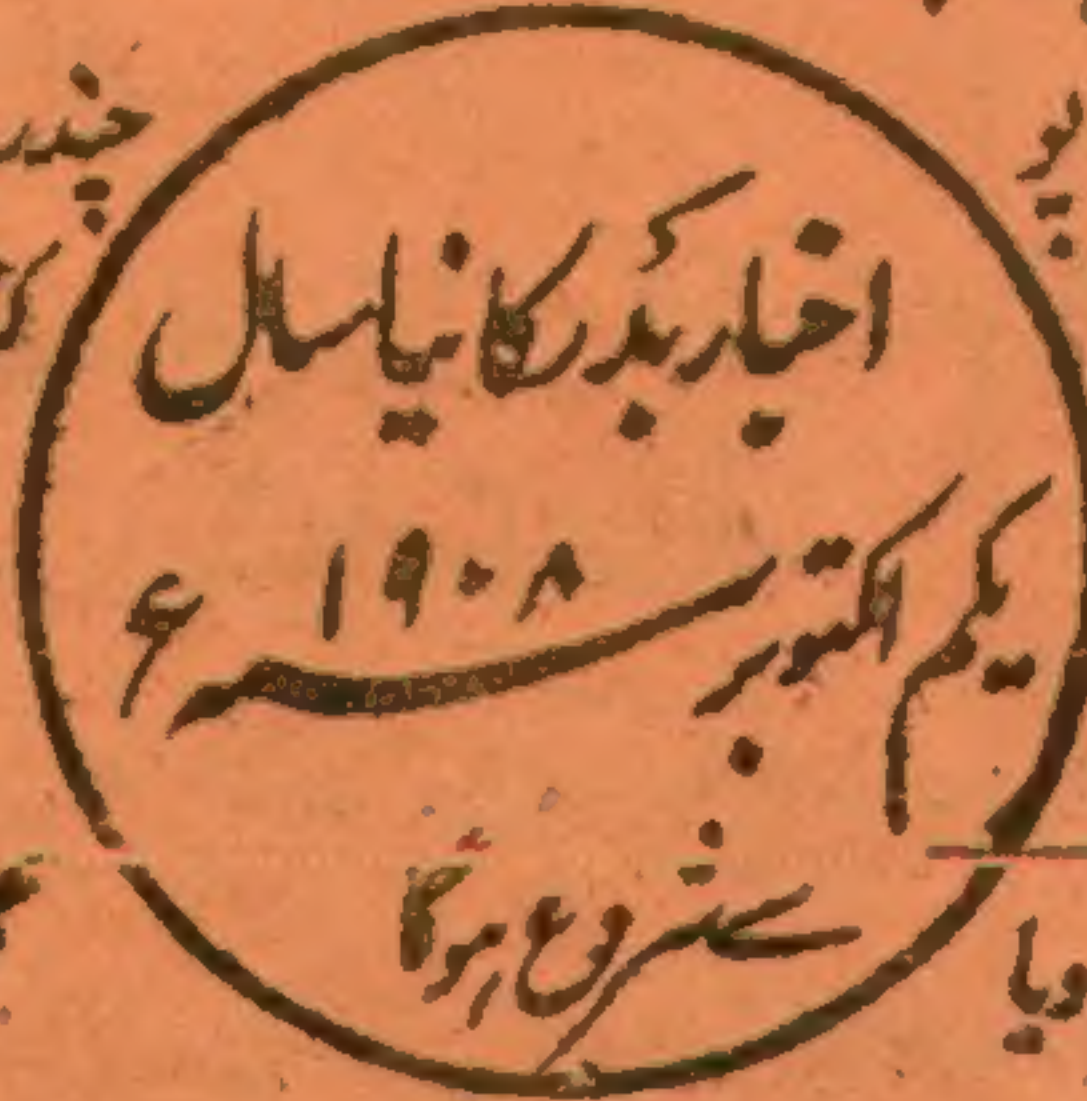 اخبار بدر کا نیا سال
یکم اکتوبر ۱۹۰۸ء
سے شروع ہوگا